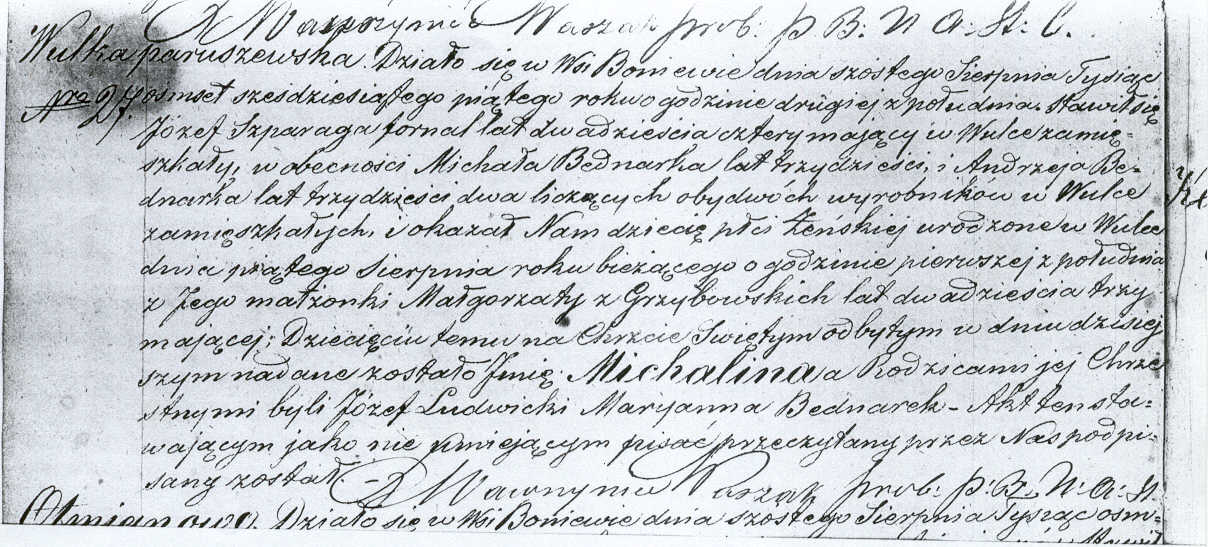 X Wawrzyniec Waszak prob: p B. U A. St: C.
Wulka paruszewska. Działo się w Wsi Boniewie dnia szóstego Sierpnia Tysiąc
Nro 27. ośmset szesdziesiątego piątego roku o godzinie drugiej z południa. Stawił się
Józef Szparaga fornal lat dwadzieścia cztery mający w Wulce zamię-
szkały, w obecności Michała Bednarka lat trzydzieści, i Andrzeja Be-
dnarka lat trzydzieści dwa liczących obydwóch wyrobników w Wulce
zamięszkałych, i okazał Nam dziecię płci Żeńskiej urodzone w Wulce
dnia piątego Sierpnia roku bieżącego o godzinie pierwszej z południa
z Jego małżonki Małgorzaty z Grzybowskich lat dwadzieścia trzy
mającej; Dziecięciu temu na Chrzcie Świętym odbytym w dniu dzisiej
szym nadane zostało Jmię: Michalina a Rodzicami jej Chrze
stnymi byli Józef Ludwicki Maryanna Bednarek - Akt ten sta-
wającym jako nie umiejącym pisać przeczytany przez Nas podpi-
sany został. - X Wawrzyniec Waszak prob: p: B. U. A: St.
Otmianowo. Działo się w Wsi Boniewie dnia szóstego Sierpnia Tysiąc ośm-